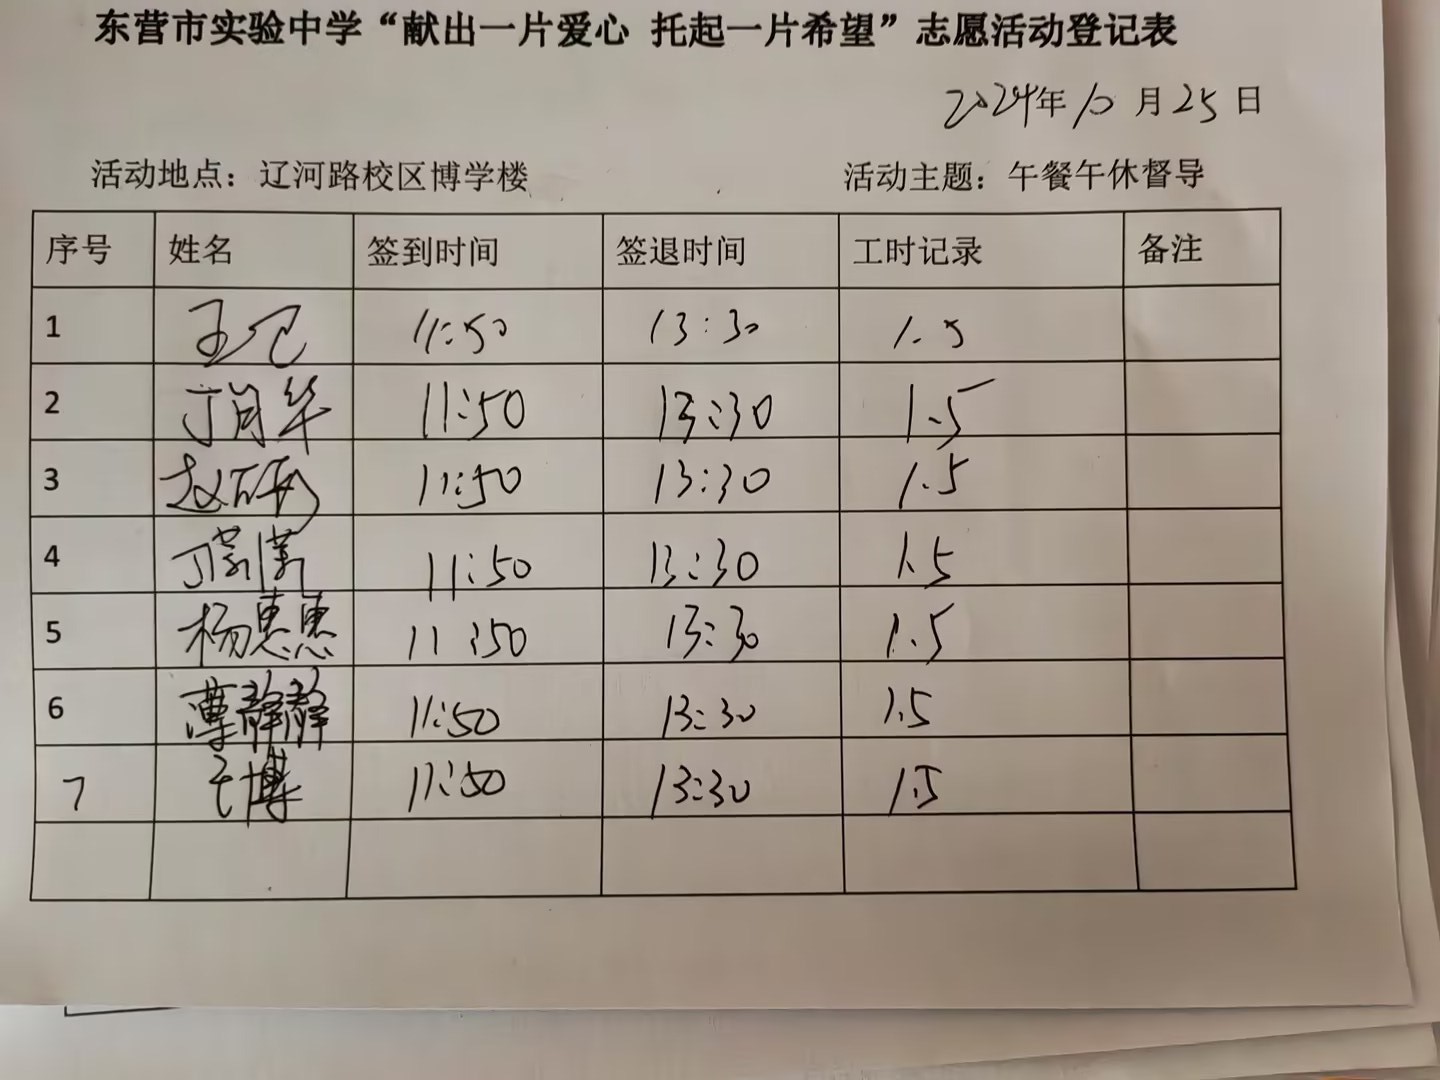 东营市实验中学“献出一片爱心 托起一片希望”志愿活动登记表
2024年10月25日
活动地点：辽河路校区博学楼 活动主题：午餐午休督导
序号 姓名 签到时间 签退时间 工时记录 备注
1 11:50 13:30 1.5
2 丁肖华 11:50 13:30 1.5
3 赵研彤 11:50 13:30 1.5
4 11:50 13:30 1.5
5 杨惠惠 11:50 13:30 1.5
6 薄静静 11:50 13:30 1.5
7 王博 11:50 13:30 1.5